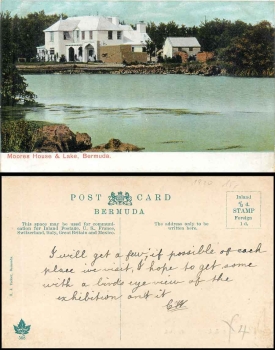 Moores House & Lake, Bermuda.
POST CARD
BERMUDA
This space may be used for communi-
cation for Inland Postage, U. S., France,
Switzerland, Italy, Great Britain and Mexico.
The address only to be
written here.
Inland
½ d.
STAMP
Foreign
1 d.
I will get a few if possible of each
place we visit, I hope to get some
with a birds eye view of the
exhibition on it